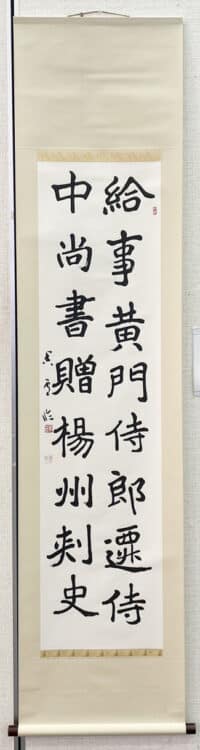 給事黄門侍郎遷侍
中尚書贈楊州刺史